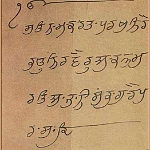 ੴ
ਸਤਿਨਾਮੁਕਰਤਾਪੁਰਖੁਨਿਰ
ਭਉਨਿਰਵੈਰੁਅਕਾਲਮੂ
ਰਤਿਅਜੂਨੀਸੈਭੰਗੁਰਪ੍ਰ
ਸਾਦਿ